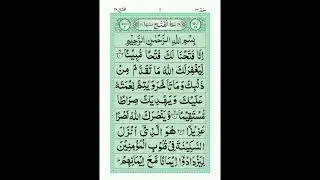 سُورَةُ الْفَتْحِ
بِسْمِ اللّٰهِ الرَّحْمٰنِ الرَّحِيْمِ
اِنَّا فَتَحْنَا لَكَ فَتْحًا مُّبِيْنًا
لِّيَغْفِرَ لَكَ اللّٰهُ مَا تَقَدَّمَ مِنْ
ذَنْۢبِكَ وَمَا تَاَخَّرَ وَيُتِمَّ نِعْمَتَهٗ
عَلَيْكَ وَيَهْدِيَكَ صِرَاطًا
مُّسْتَقِيْمًا وَّيَنْصُرَكَ اللّٰهُ نَصْرًا
عَزِيْزًا هُوَ الَّذِيْٓ اَنْزَلَ
السَّكِيْنَةَ فِيْ قُلُوْبِ الْمُؤْمِنِيْنَ
لِيَزْدَادُوْٓا اِيْمَانًا مَّعَ اِيْمَانِهِمْ